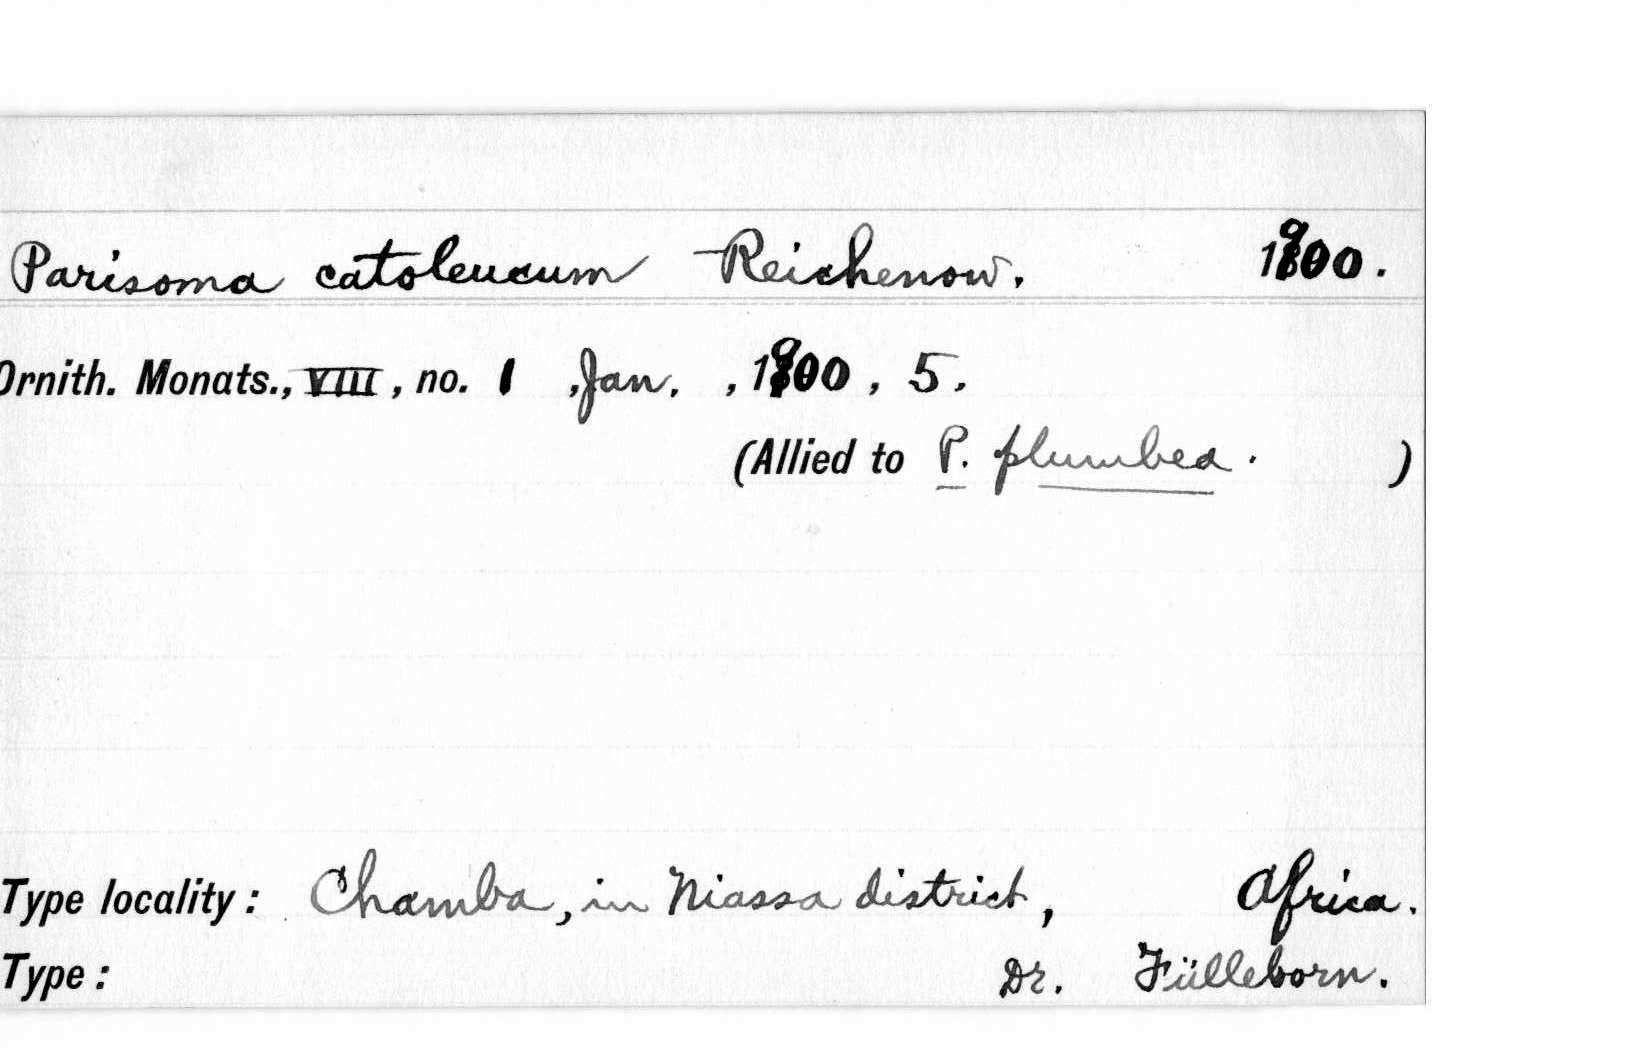 Parisoma catoleucum Reichenow. 1900.
Ornith. Monats., VIII, no. 1 ,Jan. , 1900 , 5.
(Allied to P. plumbea. )
Type locality: Chamba, in Niassa district, Africa.
Type: Dr. Fülleborn.